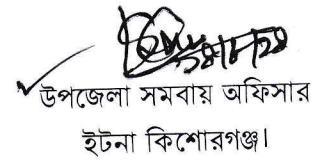 উপজেলা সমবায় অফিসার
ইটনা কিশোরগঞ্জ।